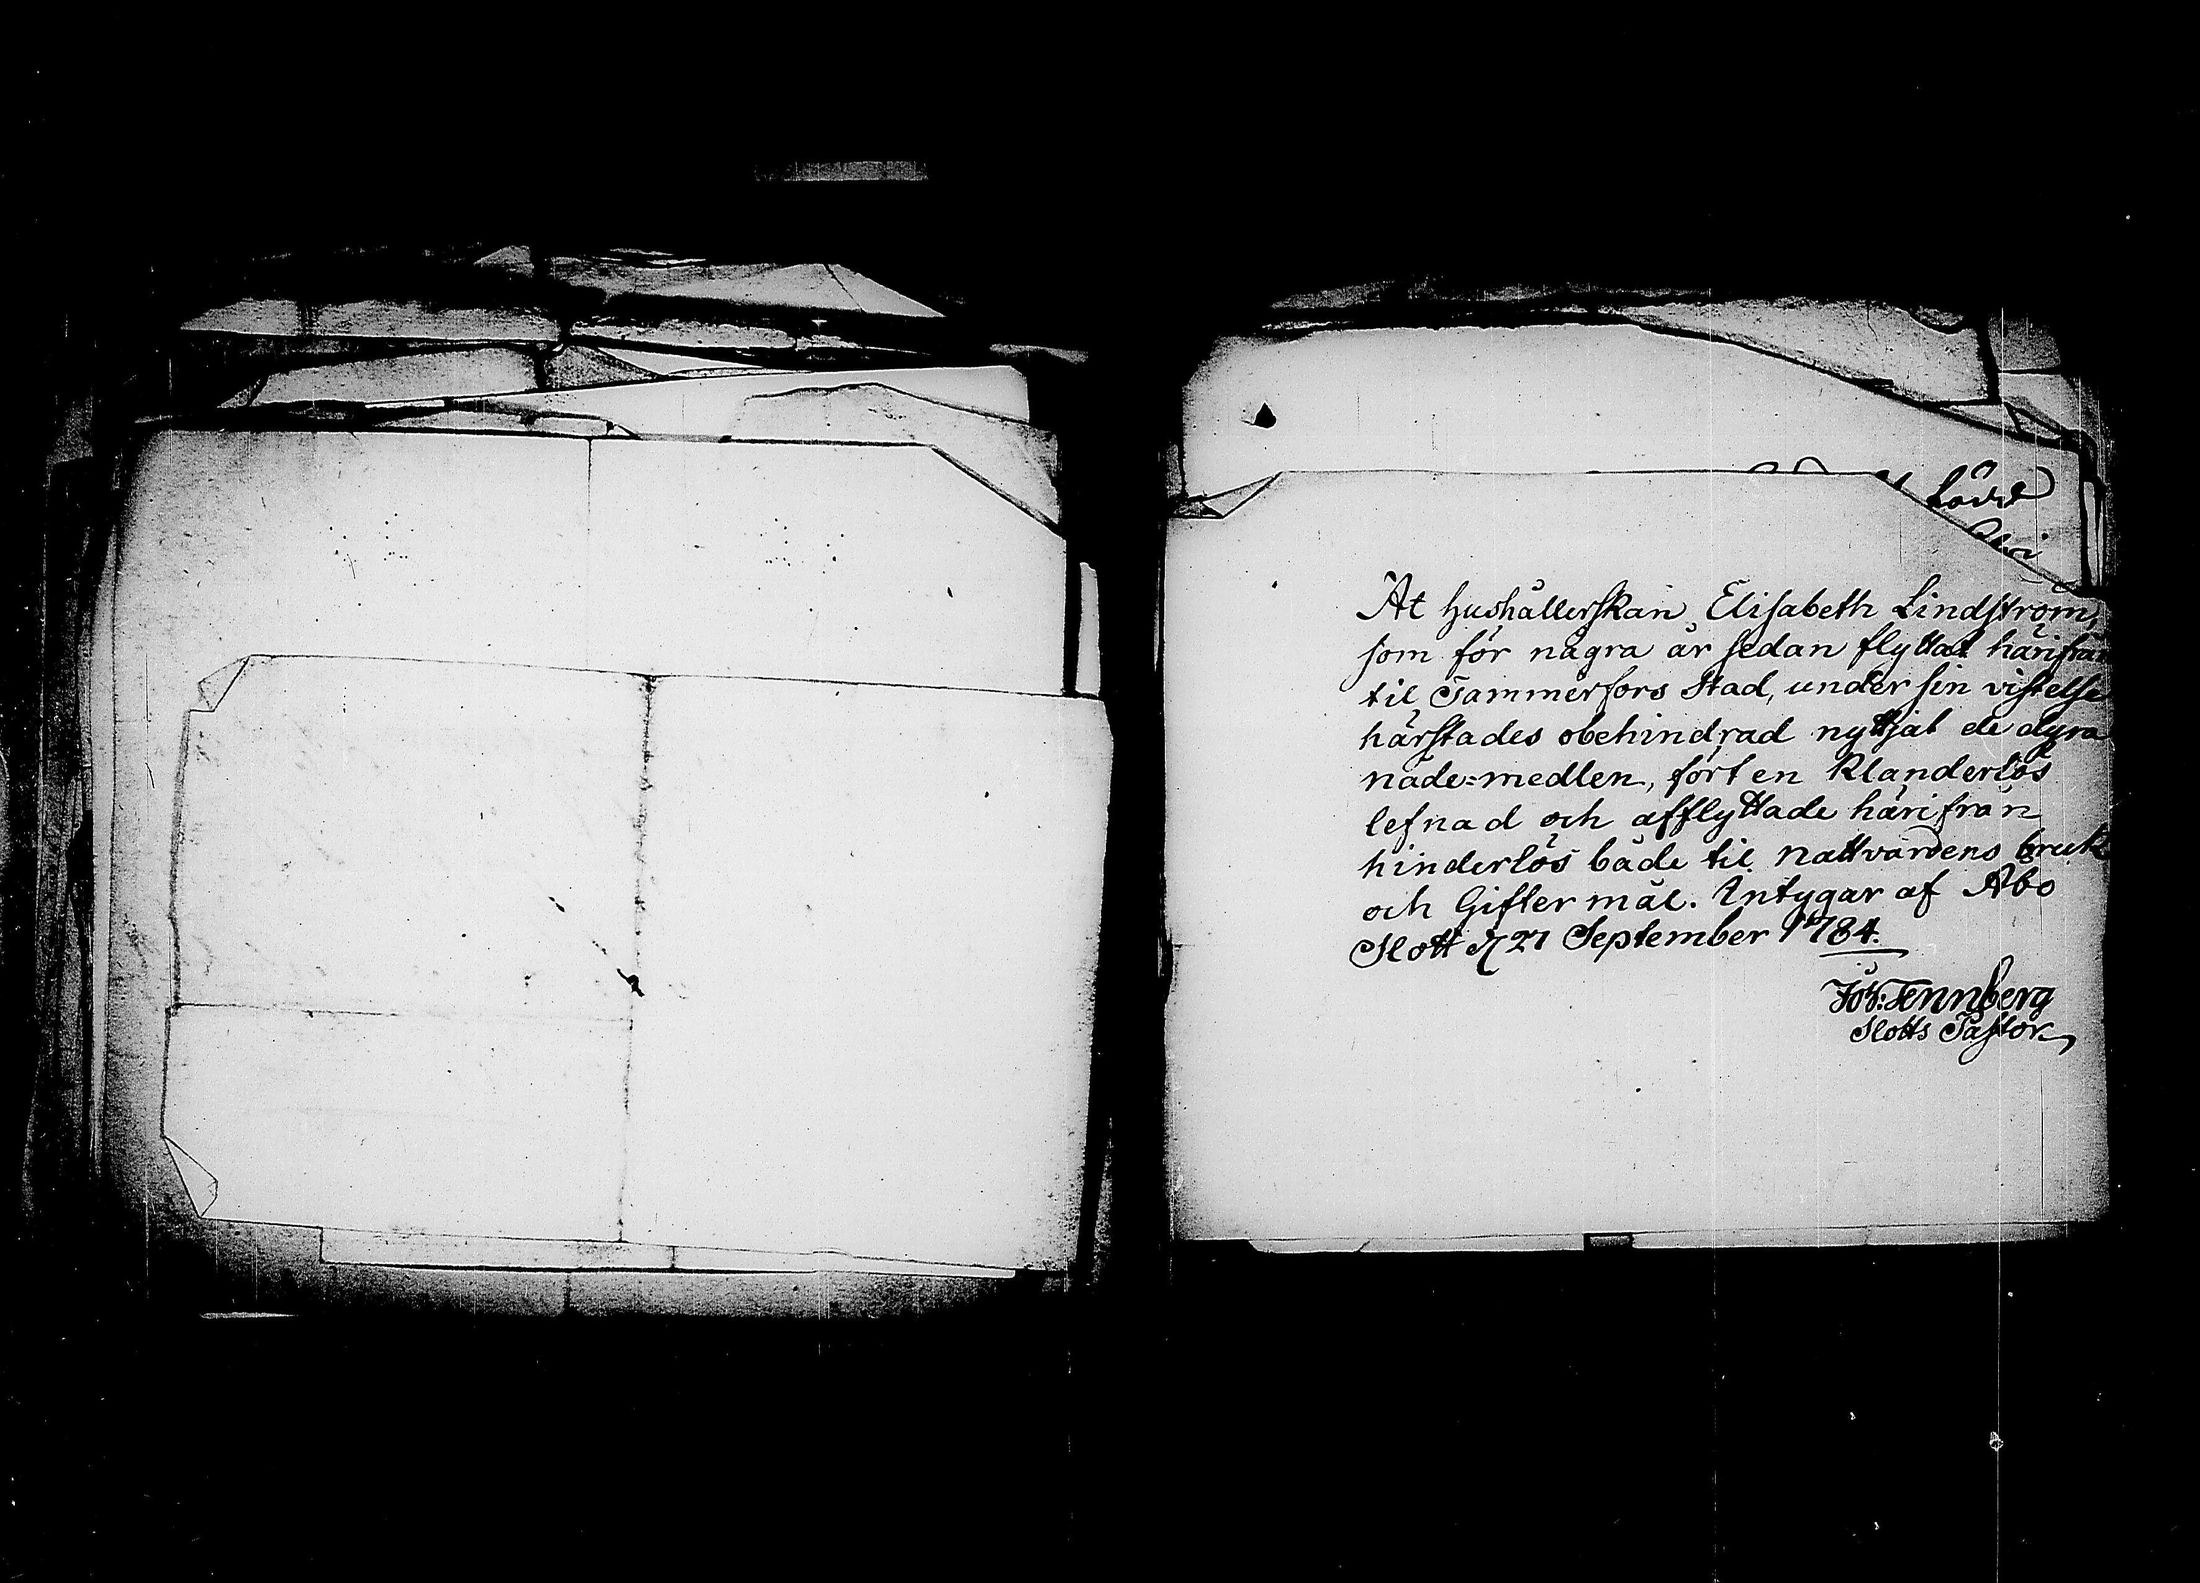 Låvel
At hushållerskan Elisabeth Lindström,
som för några år sedan flyttat härifrån
til Tammerfors Stad, under sin vistelse
härstädes obehindrad nyttjat de dyra
nåde=medlen, fört en klanderlös
lefnad och afflyttade härifrån
hinderlös både til nattvardens bruk
och Giftermål. Intygar af Åbo
Slott d 27 September 1784.
Joh: Tennberg
Slotts Pastor